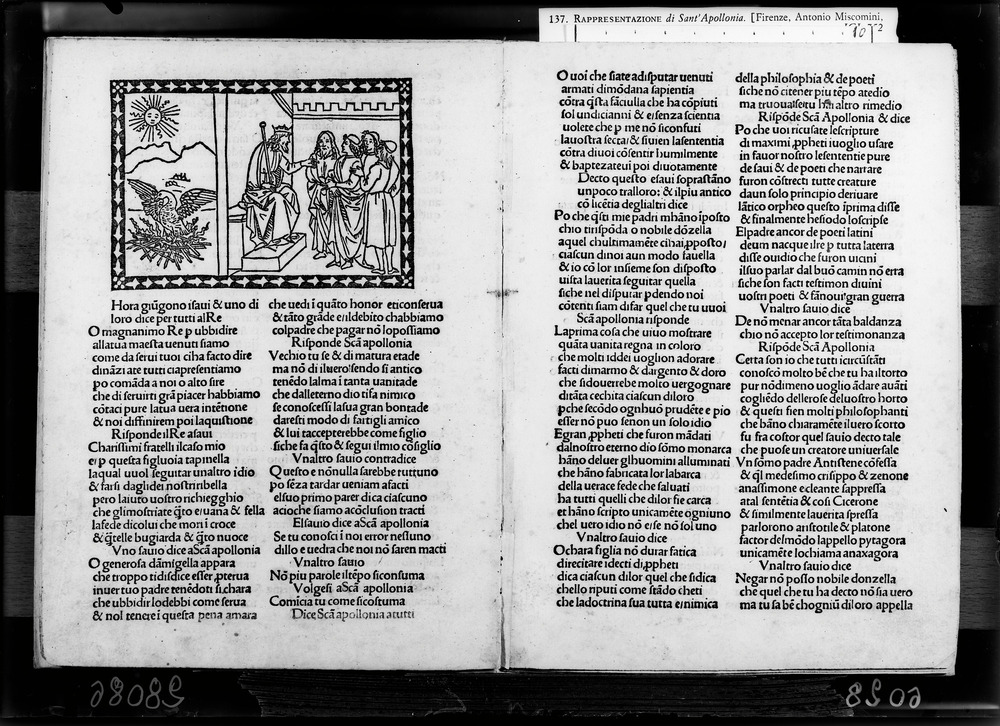 137. RAPPRESENTAZIONE di Sant'Apollonia. [Firenze, Antonio Miscomini,
Hora giũgono isaui & uno di
loro dice per tutti al Re
O magnanimo Re p ubbidire
allatua maesta uenuti siamo
come da serui tuoi ciha facto dire
dinãzi ate tutti ciapresentiamo
po comãda a noi o alto sire
che di seruirti grã piacer habbiamo
cõtaci pure latua uera intẽtione
& noi diffinirem poi laquistione
Risponde il Re asaui
Charissimi fratelli ilcaso mio
e/ p questa figluola tapinella
laqual uuol seguitar unaltro idio
& farsi daglidei nostri ribella
pero laiuto uostro richieggho
che glimostriate q̃to e/ uana & fella
lafede dicolui che mori ĩ croce
& q̃telle bugiarda & q̃to nuoce
Vno sauio dice a Scã apollonia
O generosa dãmigella appara
che troppo tidisdice esser pterua
inuer tuo padre tenẽdoti si chara
che ubbidir lodebbi come serua
& nol tenere ĩ questa pena amara
che uedi ĩ quãto honor eticonserua
& tãto grãde eildebito chabbiamo
colpadre che pagar nõ lopossiamo
Risponde Scã apollonia
Vechio tu se & di matura etade
ma nõ di iluero/ sendo sĩ antico
tenẽdo lalma ĩ tanta uanitade
che dalleterno dio tisa nimico
se conoscessi lasua gran bontade
daresti modo di fartigli amico
& lui taccepterebbe come figlio
siche fa q̃sto & segui ilmo cõsiglio
Vnaltro sauio contradice
Questo e nõnulla sarebbe tuttuno
po sẽza tardar ueniam afacti
elsuo primo parer dica ciascuno
acioche siamo acõclusion tracti
El sauio dice a Scã apollonia
Se tu conosci ĩ noi error nessuno
dillo e uedra che noi nõ saren macti
Vnaltro sauio
Nõ piu parole iltẽpo siconsuma
Volgesi a Scã apollonia
Comĩcia tu come sicostuma
Dice Scã apollonia atutti
O uoi che siate adisputar uenuti
armati dimõdana sapientia
cõtra q̃sta fãciulla che ha cõpiuti
sol undicianni & e/ senza scientia
uolete che p me nõ siconfuti
lauostra secta/ & siuien lasententia
cõtra diuoi cõsentir humilmente
& baptezateui poi diuotamente
Decto questo esaui soprastãno
unpoco tralloro: & ilpiu antico
cõ licẽtia deglialtri dice
Po che q̃sti mie padri mhãno ĩposto
chio tirispõda o nobile dõzella
aquel chultimamẽte cihai pposto/
ciascun dinoi aun modo fauella
& io cõ lor insieme son disposto
uista lauerita seguitar quella
siche nel disputar pdendo noi
cõtenti siam difar quel che tu uuoi
Scã apollonia risponde
Laprima cosa che uiuo mostrare
quãta uanita regna in coloro
che molti iddei uoglion adorare
facti dimarmo & dargento & doro
che sidouerrebe molto uergognare
ditãta cechita ciascun diloro
pche secõdo ognhuõ prudẽte e pio
esser nõ puo senon un solo idio
E gran ppheti che furon mãdati
dalnostro eterno dio sõmo monarca
hãno deluer glhuomini alluminati
che hãno fabricata lor labarca
della uerace fede che saluati
ha tutti quelli che dilor fie carca
et hãno scripto unicamẽte ogniuno
chel uero idio nõ e/ se nõ sol uno
Vnaltro sauio dice
Ochara figlia nõ durar fatica
direcitare idecti di ppheti
dica ciascun dilor quel che sidica
chello riputi come stãdo cheti
che ladoctrina sua tutta e/ inimica
della philosophia & de poeti
siche nõ citener piu tẽpo atedio
ma truoua altro rimedio
Rispõde Scã Apollonia & dice
Po che uoi ricusate lescripture
di maximi ppheti iuoglio usare
in fauor nostro lesententie pure
de saui & de poeti che narrare
furon cõstrecti tutte creature
daun solo principio deriuare
lãtico orpheo questo ĩprima disse
& finalmente hesiodo loscripse
El padre ancor de poeti latini
deum nacque ilre p tutta laterra
disse ouidio che furon uicini
ilsuo parlar dal buõ camin nõ erra
siche son facti testimon diuini
uostri poeti & fãnoui gran guerra
Vnaltro sauio dice
De nõ menar ancor tãta baldanza
chio nõ accepto lor testimonanza
Rispõde Scã Apollonia
Certa son io che tutti icircũstãti
conoscõ molto bẽ che tu hai ltorto
pur nõdimeno uoglio ãdare auãti
cogliẽdo dellerose deluostro horto
& questi fien molti philosophanti
che hãno chiaramẽte iluero scorto
fu fra costor quel sauio decto tale
che puose un creatore uniuersale
Vn sõmo padre Antistene cõfessa
& q̃l medesimo crisippo & zenone
anassimone e cleante sappressa
atal sentẽtia & cosi Cicerone
& similmente lauerita spressa
parlorono aristotile & platone
factor delmõdo lappello pytagora
unicamẽte lochiama anaxagora
Vnaltro sauio dice
Negar nõ posso nobile donzella
che quel che tu ha decto nõ sia uero
ma tu sa bẽ chogniũ diloro appella